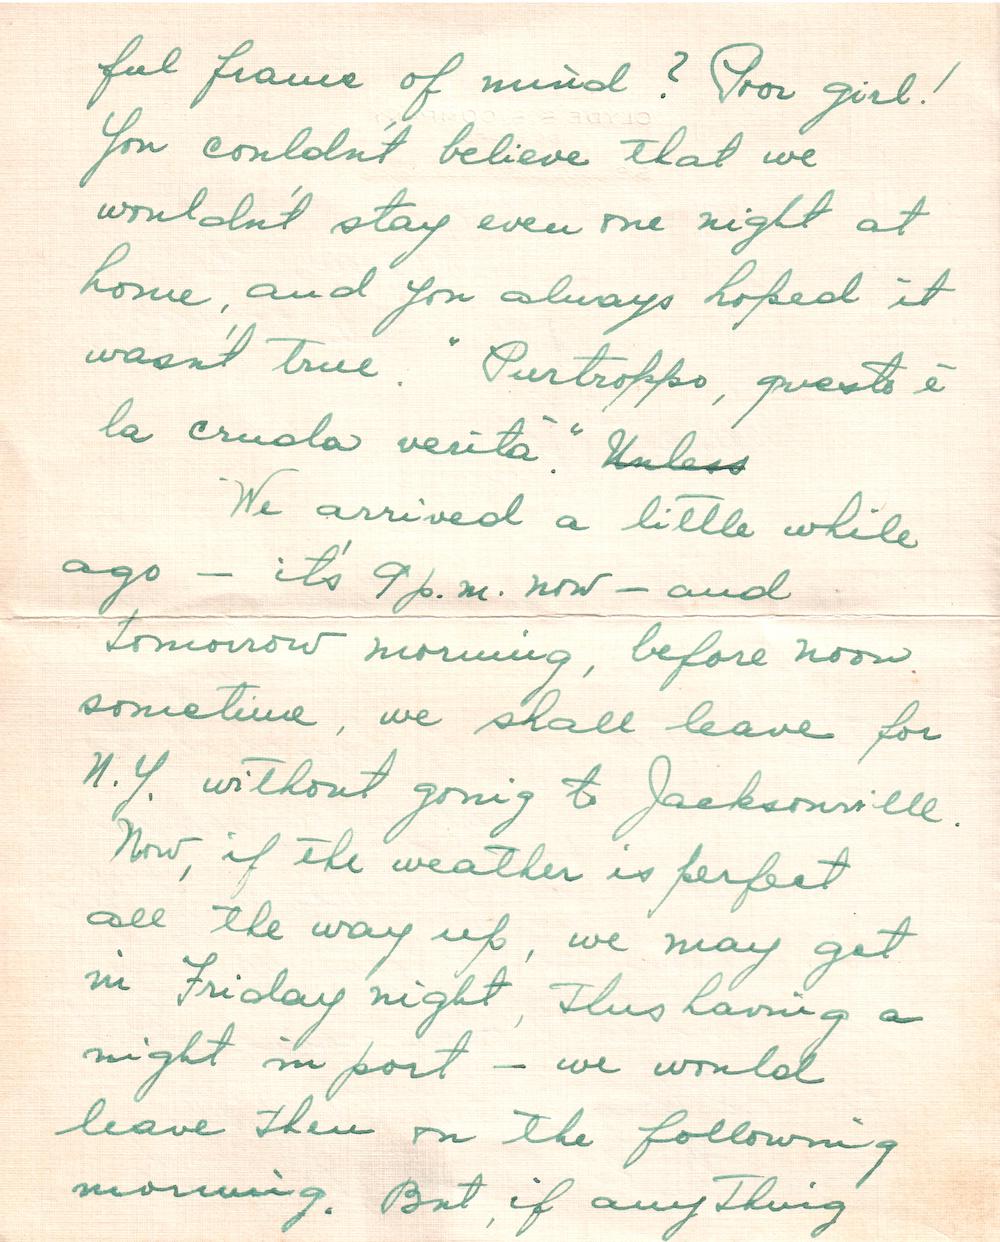 ful frame of mind? Poor girl!
You couldn't believe that we
wouldn't stay even one night at
home, and you always hoped it
wasn't true. "Purtroppo, questo è
la cruda verità." Unless
We arrived a little while
ago — it's 9 p.m. now — and
tomorrow morning, before noon
sometime, we shall leave for
N.Y. without going to Jacksonville.
Now, if the weather is perfect
all the way up, we may get
in Friday night, thus having a
night in port — we would
leave then on the following
morning. But, if anything